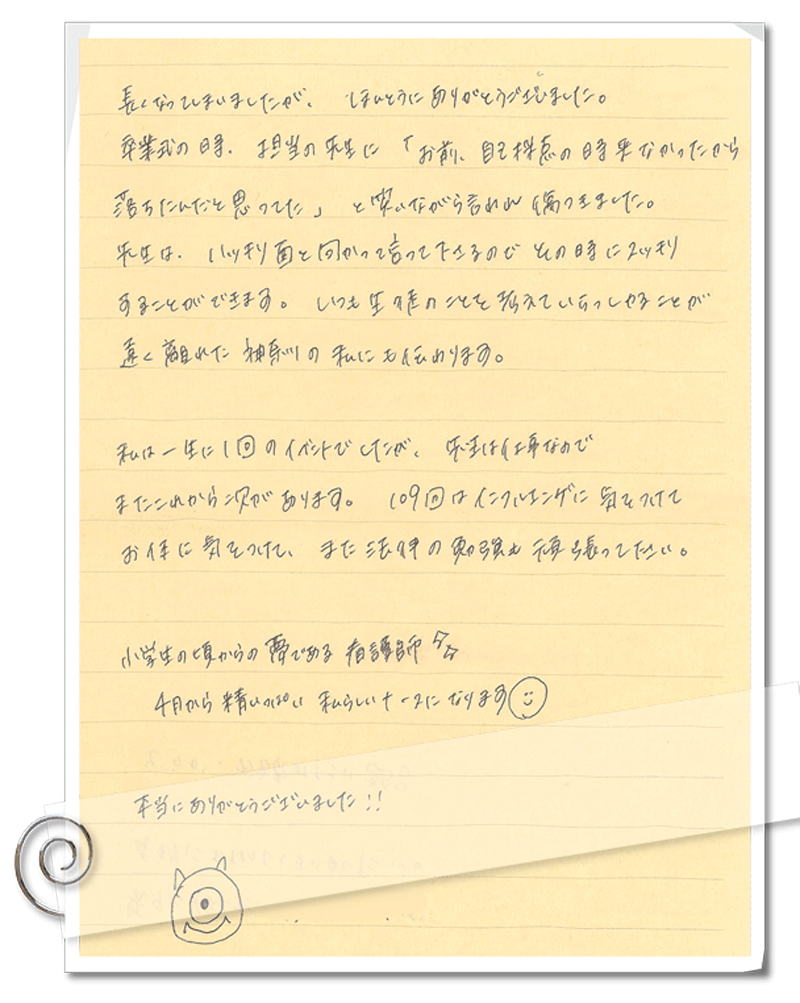 長くなってしまいましたが、ほんとうにありがとうございました。
卒業式の時、担当の先生に「お前、自己採点の時来なかったから
落ちたんだと思ってた」と笑いながら言われ傷つきました。
先生は、ハッキリ面と向かって言って下さるのでその時にスッキリ
することができます。いつも生徒のことを考えていらっしゃることが
遠く離れた神奈川の私にも伝わります。
私は一生に1回のイベントでしたが、先生は仕事なので
またこれから次があります。109回はインフルエンザに気をつけて
お体に気をつけて、また法律の勉強も頑張って下さい。
小学生の頃からの夢である看護師
4月から精いっぱい私らしいナースになります
本当にありがとうございました!!